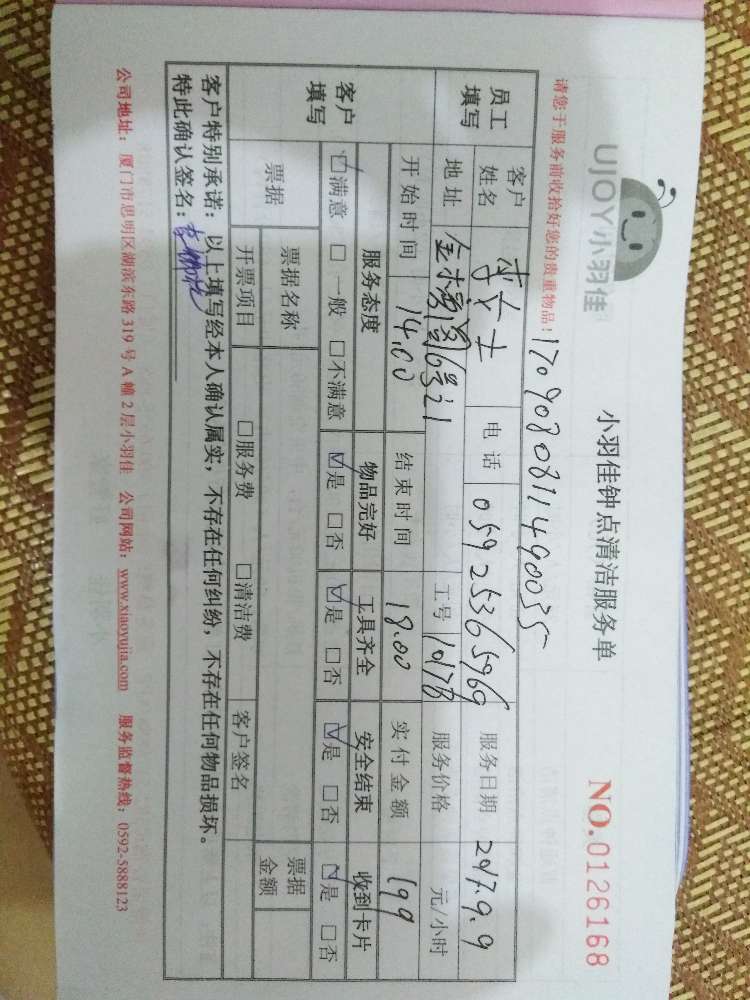 UJOY小羽佳
小羽佳钟点清洁服务单
NO.0126168
请您于服务前收拾好您的贵重物品！
170908081149 0035
员工填写 客户姓名 李女士 电话 05925365969 服务日期 2017.9.9
地址 6号21 工号 10178 服务价格 元/小时
客户填写 开始时间 14.00 结束时间 18.00 实付金额 199
服务态度 物品完好 工具齐全 安全结束 收到卡片
☑满意 □一般 □不满意 ☑是 □否 ☑是 □否 ☑是 □否 ☑是 □否
票据 票据名称 票据金额
开票项目 □服务费 □清洁费 客户签名
客户特别承诺：以上填写经本人确认属实，不存在任何纠纷，不存在任何物品损坏。
特此确认签名：
公司地址：厦门市思明区湖滨东路 319 号 A 幢 2 层小羽佳 公司网站：www.xiaoyujia.com 服务监督热线：0592-5888123